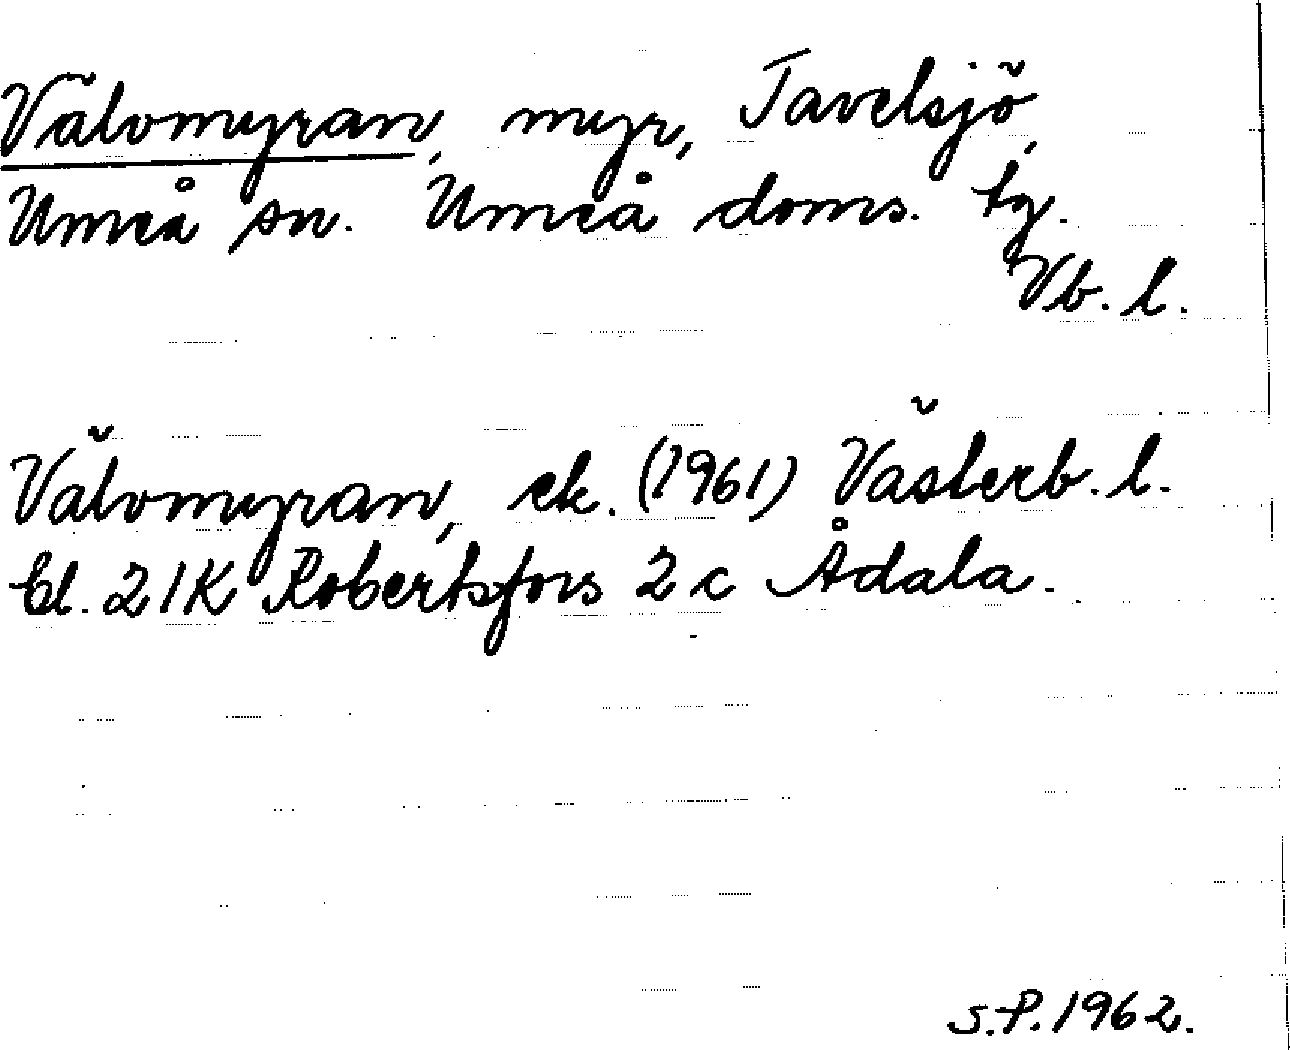 Välvomyran, myr, Tavelsjö,
Umeå sn. Umeå doms. tg.
Vb. l.
Välvomyran, ek. (1961) Västerb. l.
bl. 21K Robertsfors 2 c Ådala.
S.P. 1962.